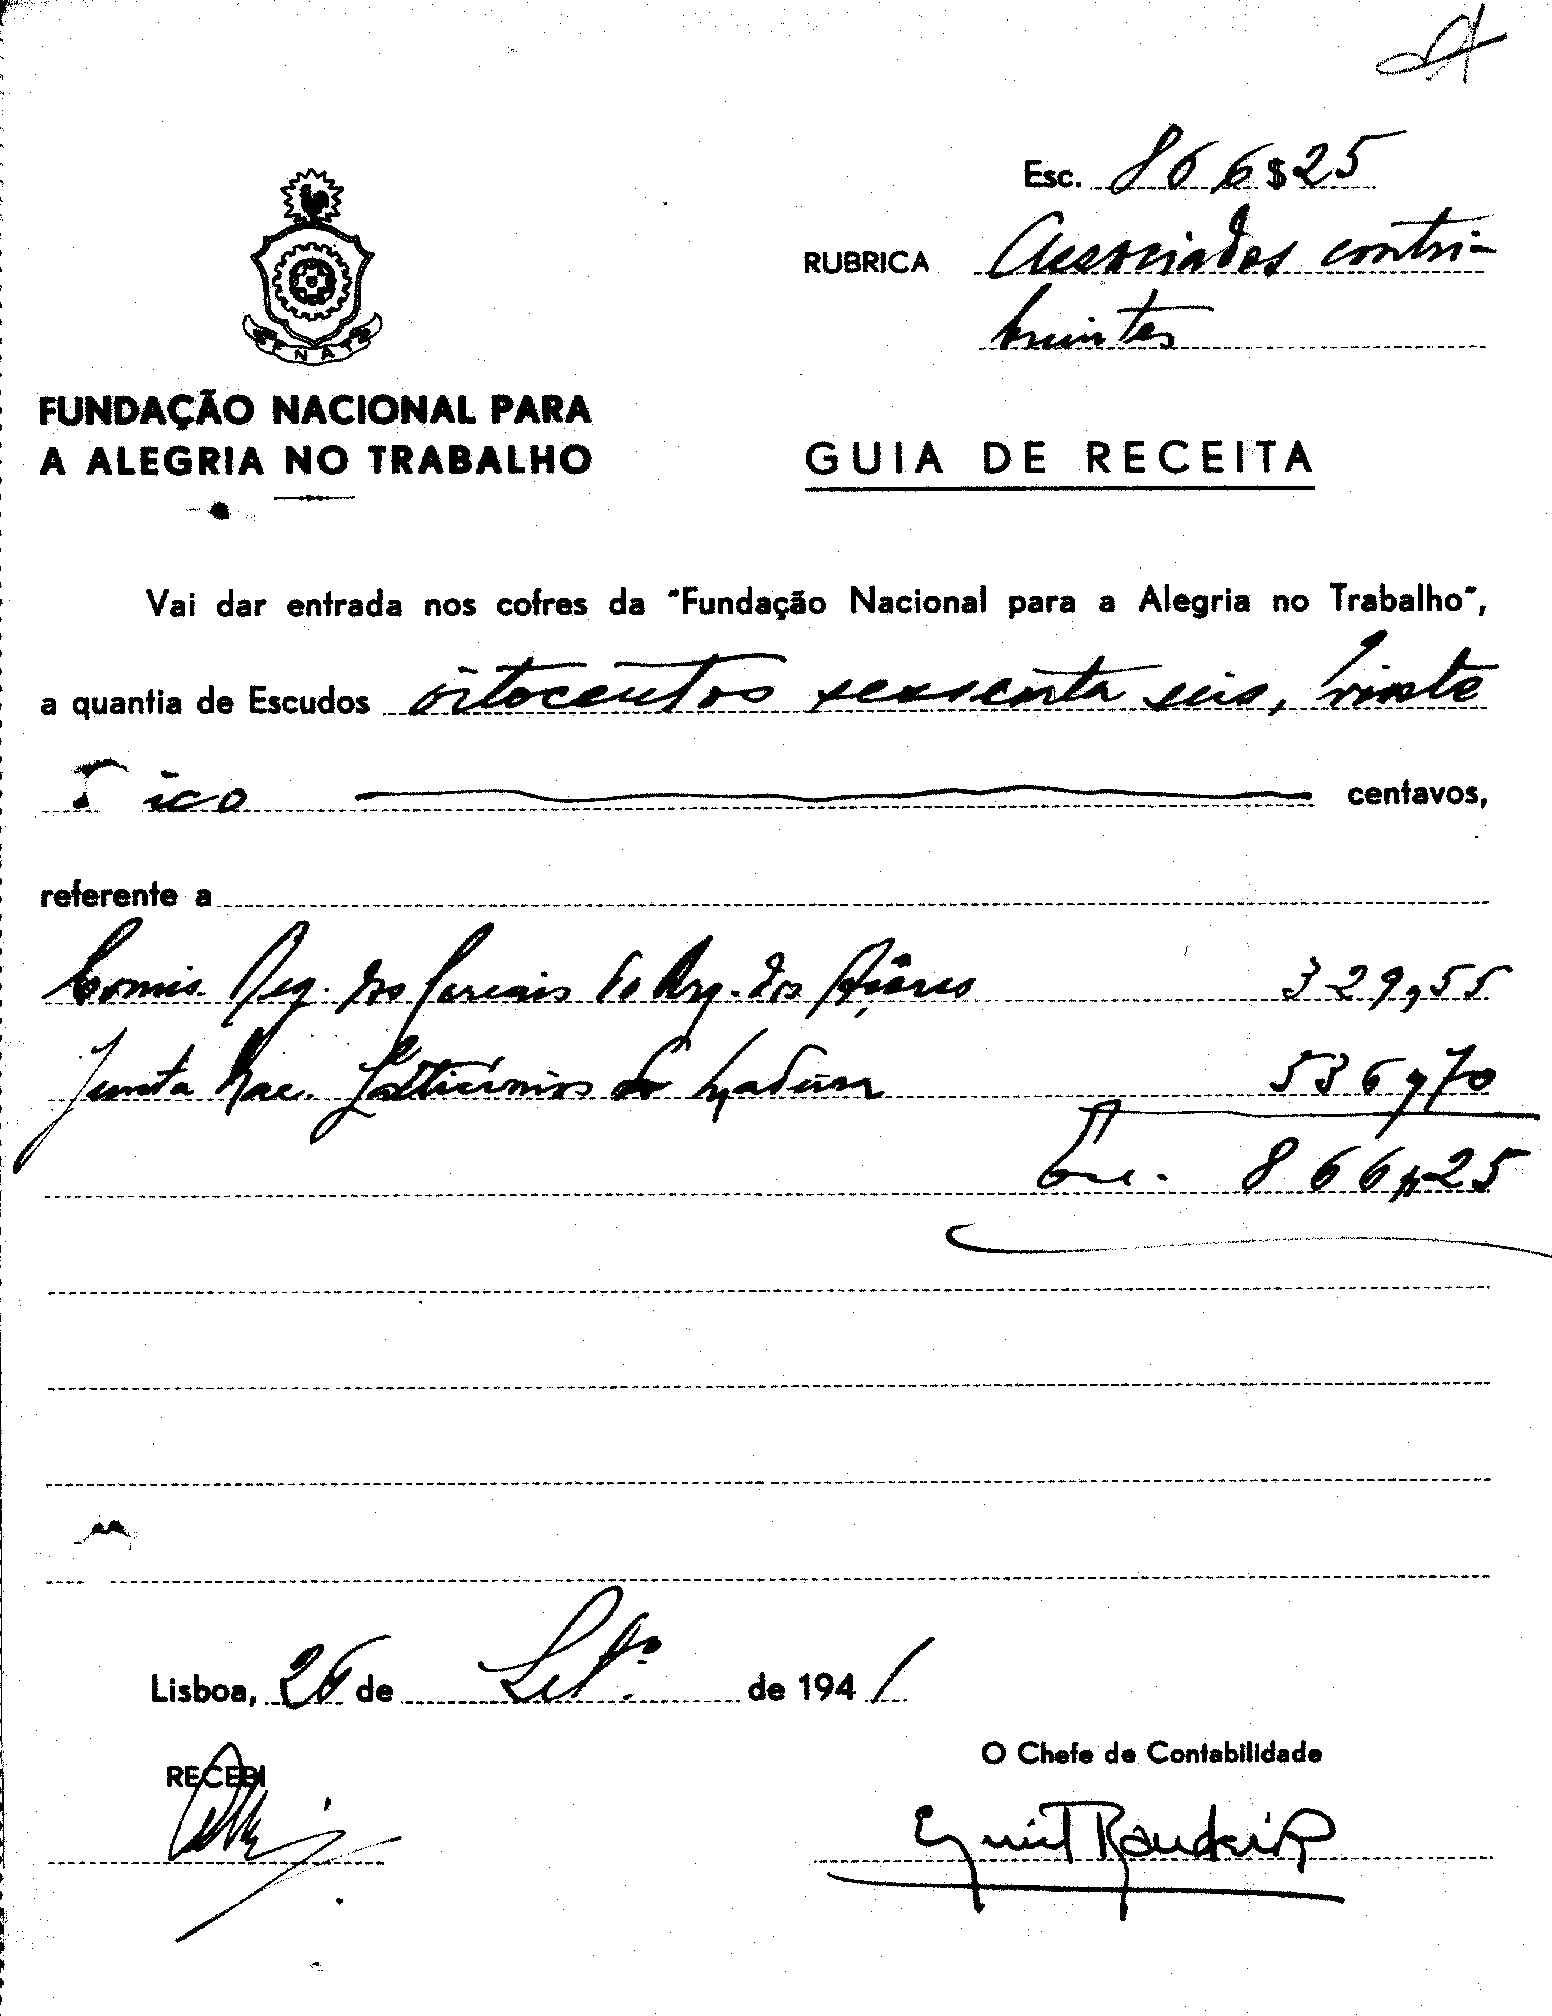 Esc. 866$25
RUBRICA Associados contri-
buintes
FENAT
FUNDAÇÃO NACIONAL PARA
A ALEGRIA NO TRABALHO
GUIA DE RECEITA
Vai dar entrada nos cofres da "Fundação Nacional para a Alegria no Trabalho",
a quantia de Escudos oitocentos sessenta seis, vinte
ico centavos,
referente a
Comis. Reg. dos Cereais do Arq. dos Açôres 329,55
Junta Nac. Lacticínios da Madeira 536,70
Esc. 866$25
Lisboa, 26 de Set.º de 1941
RECEBI
O Chefe de Contabilidade